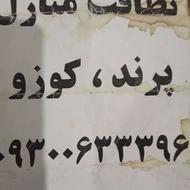 نظافت منازل
پرند، کوزو
۰۹۳۰۰۶۳۳۳۹۶